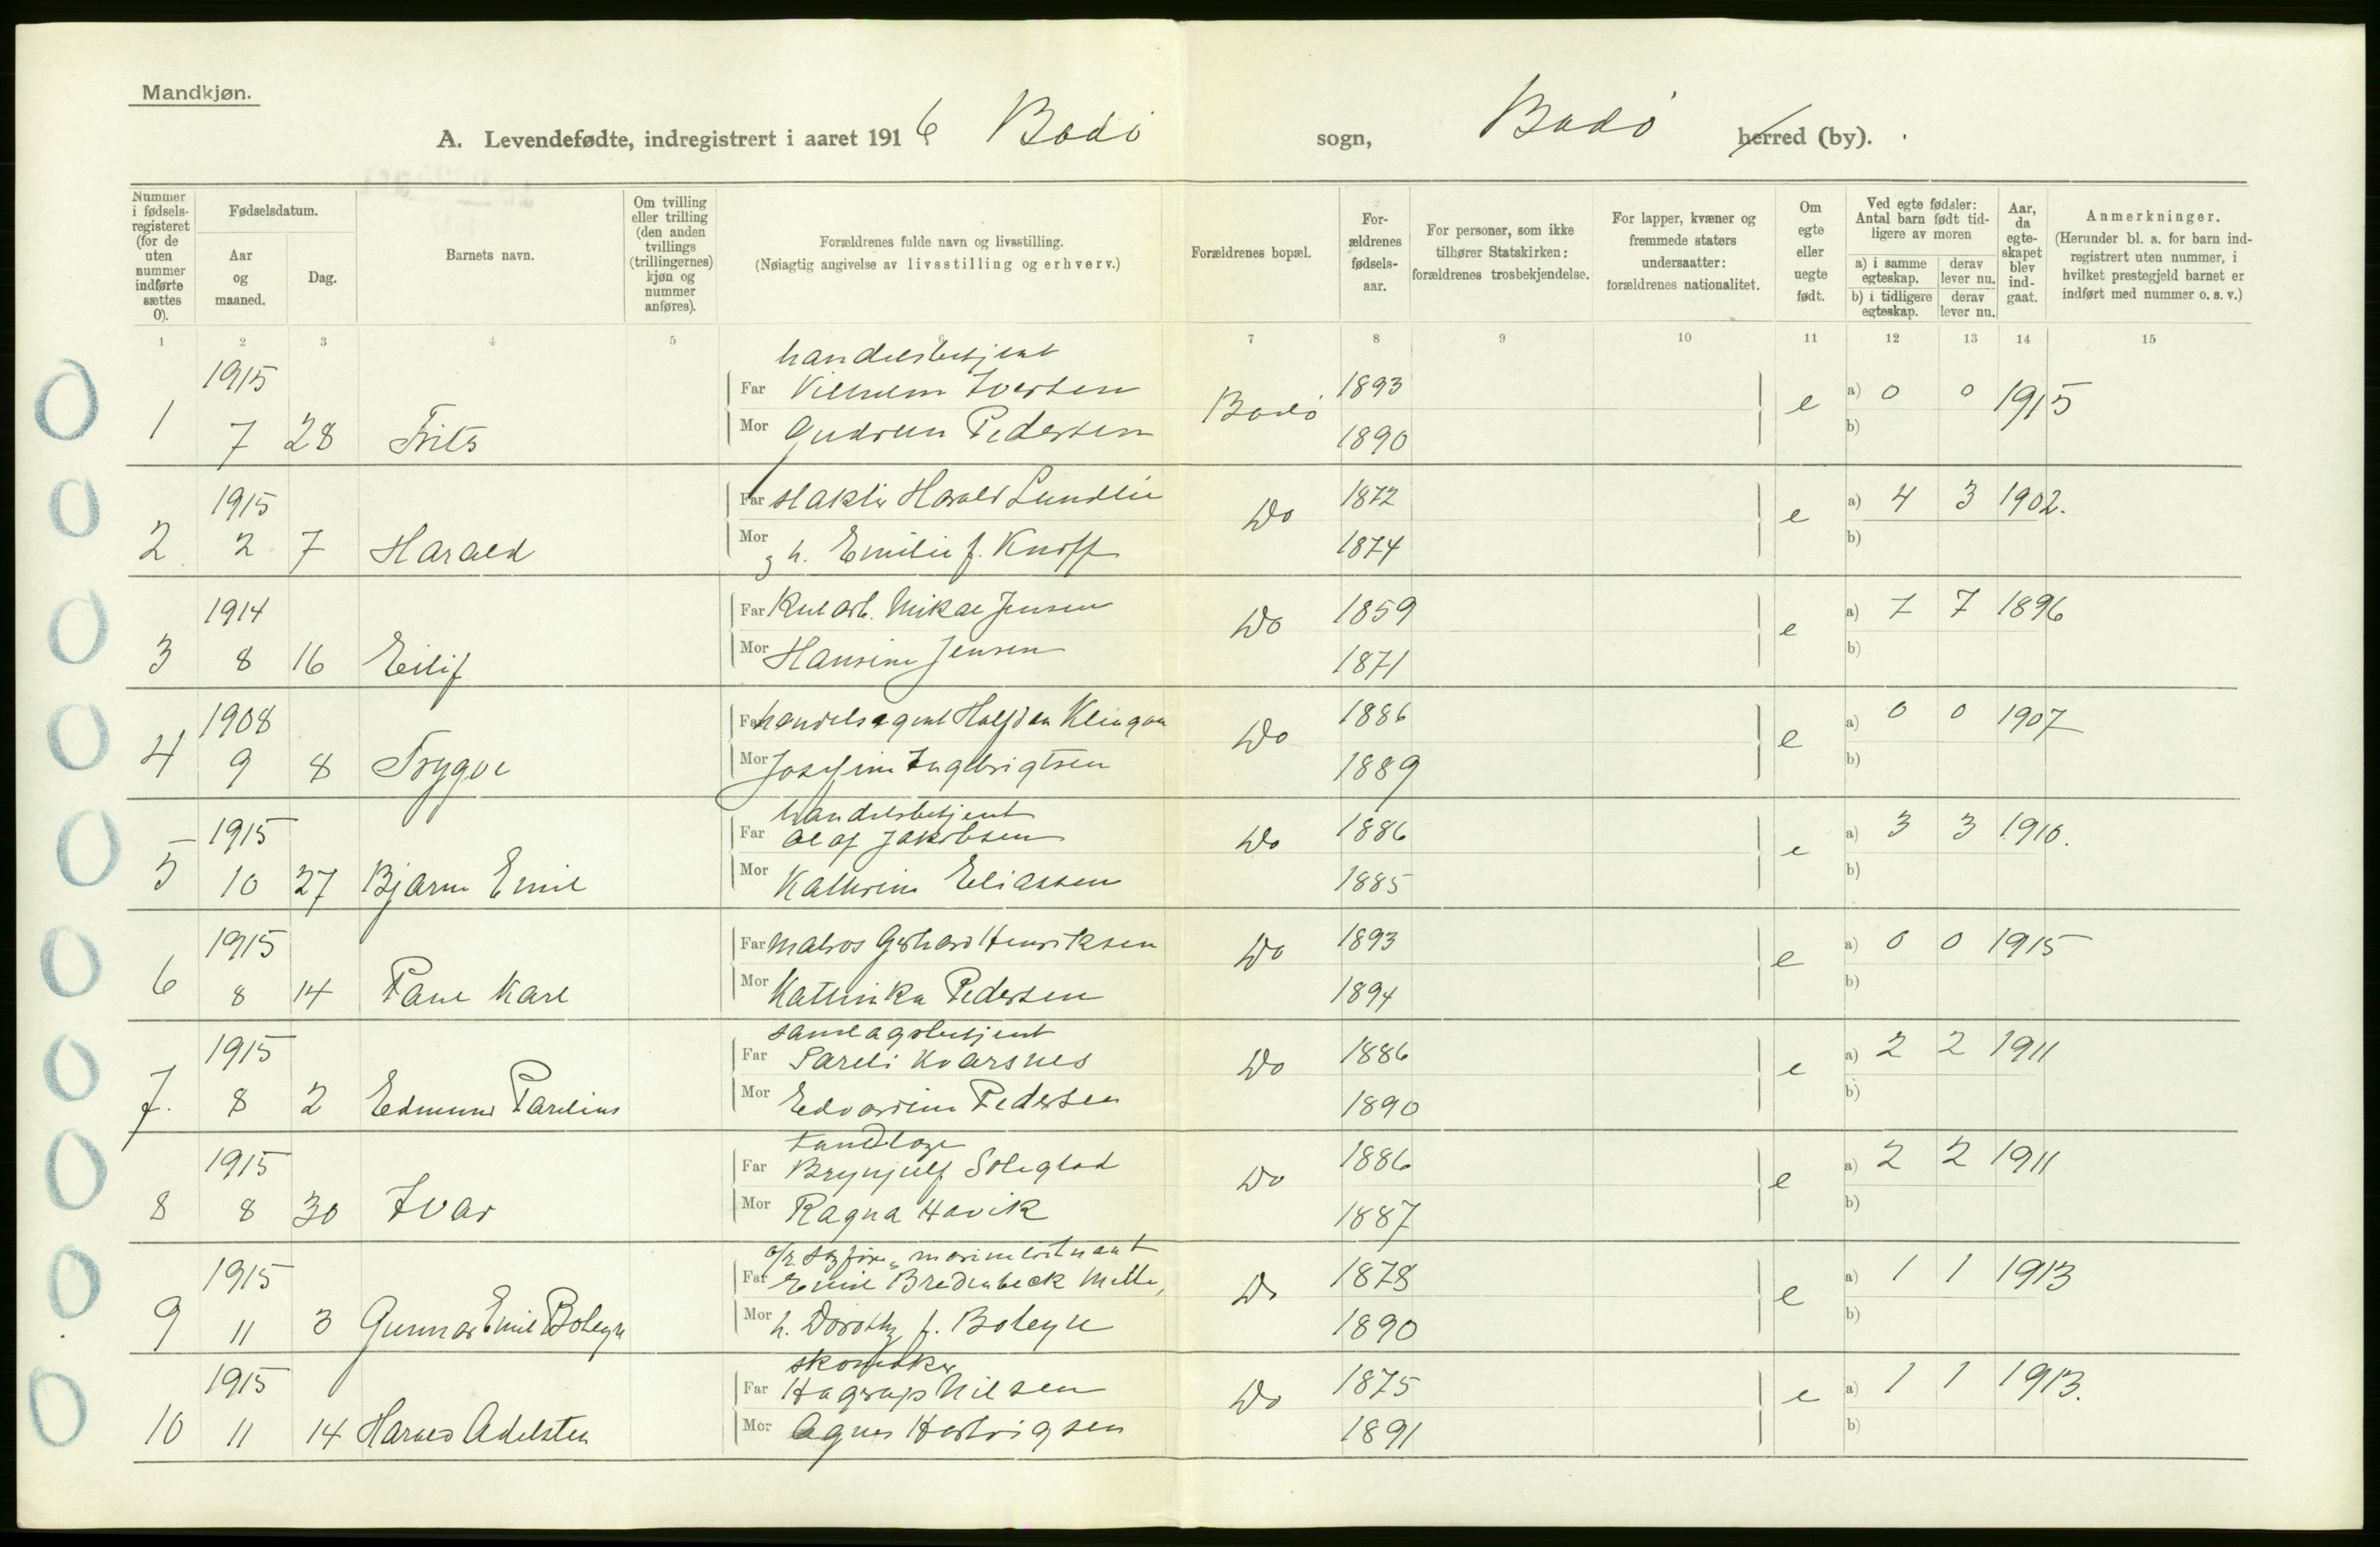 Mandkjøn.
A. Levendefødte, indregistrert i aaret 1916 Bodø sogn, Bodø herred (by).
Nummer i fødsels-registeret (for de uten nummer indførte sættes 0).
Fødselsdatum.
Aar og maaned.
Dag.
Barnets navn.
Om tvilling eller trilling (den anden tvillings (trillingernes) kjøn og nummer anføres).
Forældrenes fulde navn og livsstilling.
(Nøiagtig angivelse av livsstilling og erhverv.)
Forældrenes bopæl.
For-ældrenes fødsels-aar.
For personer, som ikke tilhører Statskirken: forældrenes trosbekjendelse.
For lapper, kvæner og fremmede staters undersaatter: forældrenes nationalitet.
Om egte eller uegte født.
Ved egte fødsler: Antal barn født tid-ligere av moren
a) i samme egteskap.
derav lever nu.
b) i tidligere egteskap.
derav lever nu.
Aar, da egte-skapet blev ind-gaat.
Anmerkninger.
(Herunder bl. a. for barn ind-registrert uten nummer, i hvilket prestegjeld barnet er indført med nummer o. s. v.)
1 2 3 4 5 6 7 8 9 10 11 12 13 14 15
handelsbetjent
1915 Far Vilhelm Iversen Bodø 1893 e a) 0 0 1915
1 7 28 Frits Mor Gudrun Pedersen 1890 b)
1915 Far Harald Do 1872 e a) 4 3 1902.
2 2 7 Harald Mor h. Emilie f. Knoff 1874 b)
1914 Far Kularb. Mikal Jensen Do 1859 e a) 7 7 1896
3 8 16 Eilif Mor Hansine Jensen 1871 b)
1908 Far handelsagent Halfdan Do 1886 e a) 0 0 1907
4 9 8 Trygve Mor Josefine Ingebrigtsen 1889 b)
handelsbetjent
1915 Far Olaf Jakobsen Do 1886 e a) 3 3 1910.
5 10 27 Bjarne Emil Mor Kathrine Eliassen 1885 b)
1915 Far Matros Gerhard Henriksen Do 1893 e a) 0 0 1915
6 8 14 Paul Karl Mor Kathinka Pedersen 1894 b)
samlagsbetjent
1915 Far Pareli Kvarsnes Do 1886 e a) 2 2 1911
7. 8 2 Edmund Parelius Mor Edvardine Pedersen 1890 b)
tandlæge
1915 Far Brynjulf Soleglad Do 1886 e a) 2 2 1911
8 8 30 Ivar Mor Ragna Høvik 1887 b)
marineløitnant
1915 Far Emil Bredenbeck Do 1878 e a) 1 1 1913
9 11 3 Gunnar Emil Boleyn Mor h. Dorothy f. Boleyn 1890 b)
skomaker
1915 Far Hagerup Nilsen Do 1875 e a) 1 1 1913.
10 11 14 Harald Adelsten Mor Agnes Hartvigsen 1891 b)